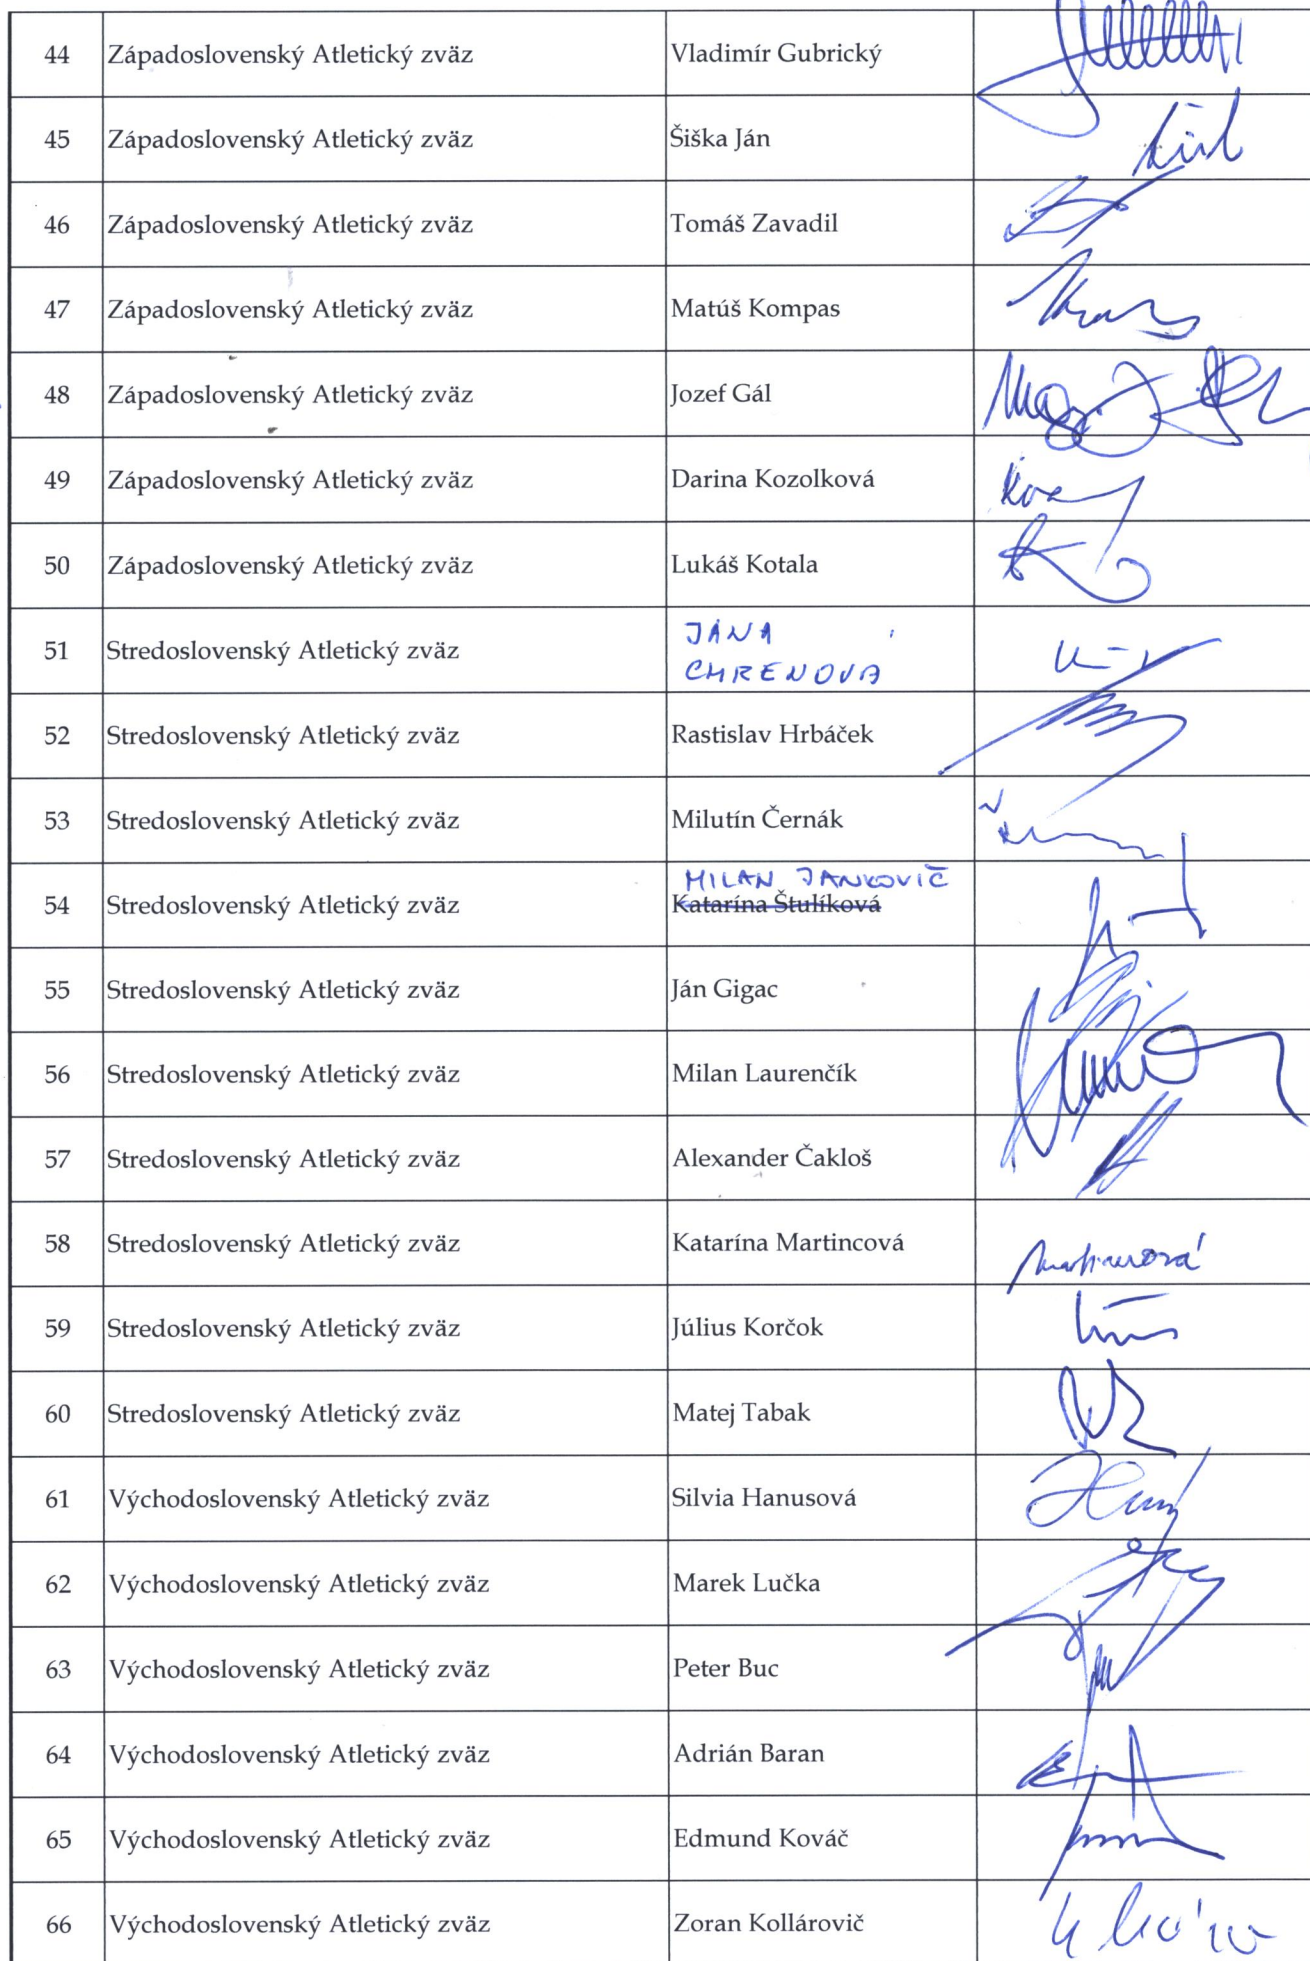 44 Západoslovenský Atletický zväz Vladimír Gubrický
45 Západoslovenský Atletický zväz Šiška Ján
46 Západoslovenský Atletický zväz Tomáš Zavadil
47 Západoslovenský Atletický zväz Matúš Kompas
48 Západoslovenský Atletický zväz Jozef Gál
49 Západoslovenský Atletický zväz Darina Kozolková
50 Západoslovenský Atletický zväz Lukáš Kotala
51 Stredoslovenský Atletický zväz JÁNA
CHRENOVÁ
52 Stredoslovenský Atletický zväz Rastislav Hrbáček
53 Stredoslovenský Atletický zväz Milutín Černák
MILAN JANKOVIČ
54 Stredoslovenský Atletický zväz Katarína Štulíková
55 Stredoslovenský Atletický zväz Ján Gigac
56 Stredoslovenský Atletický zväz Milan Laurenčík
57 Stredoslovenský Atletický zväz Alexander Čakloš
58 Stredoslovenský Atletický zväz Katarína Martincová
59 Stredoslovenský Atletický zväz Július Korčok
60 Stredoslovenský Atletický zväz Matej Tabak
61 Východoslovenský Atletický zväz Silvia Hanusová
62 Východoslovenský Atletický zväz Marek Lučka
63 Východoslovenský Atletický zväz Peter Buc
64 Východoslovenský Atletický zväz Adrián Baran
65 Východoslovenský Atletický zväz Edmund Kováč
66 Východoslovenský Atletický zväz Zoran Kollárovič